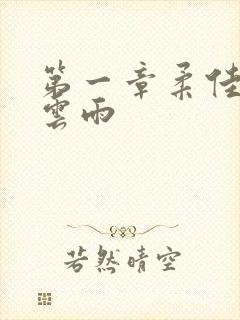 第一章柔佳
雲雨
若然晴空